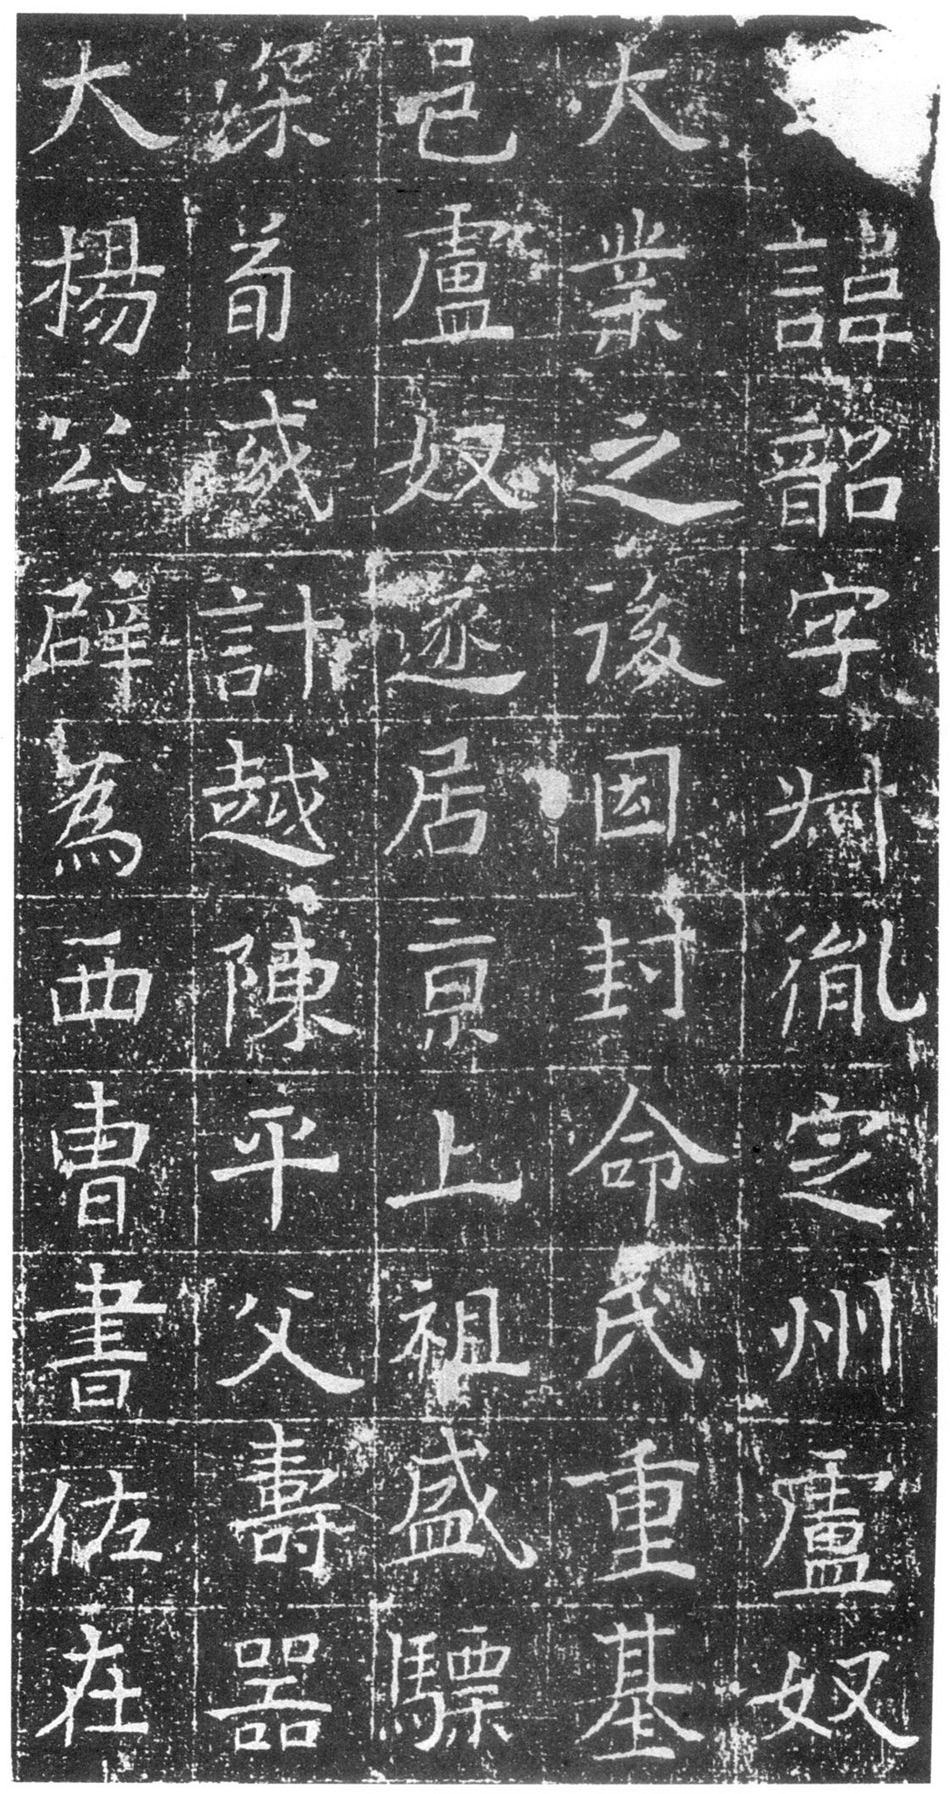 諱韶字叔胤定州盧奴
大業之後因封命民重基
邑盧奴遂居京上祖盛驃
深荀彧計越陳平父壽器
大楊公辟為西曹書佐在